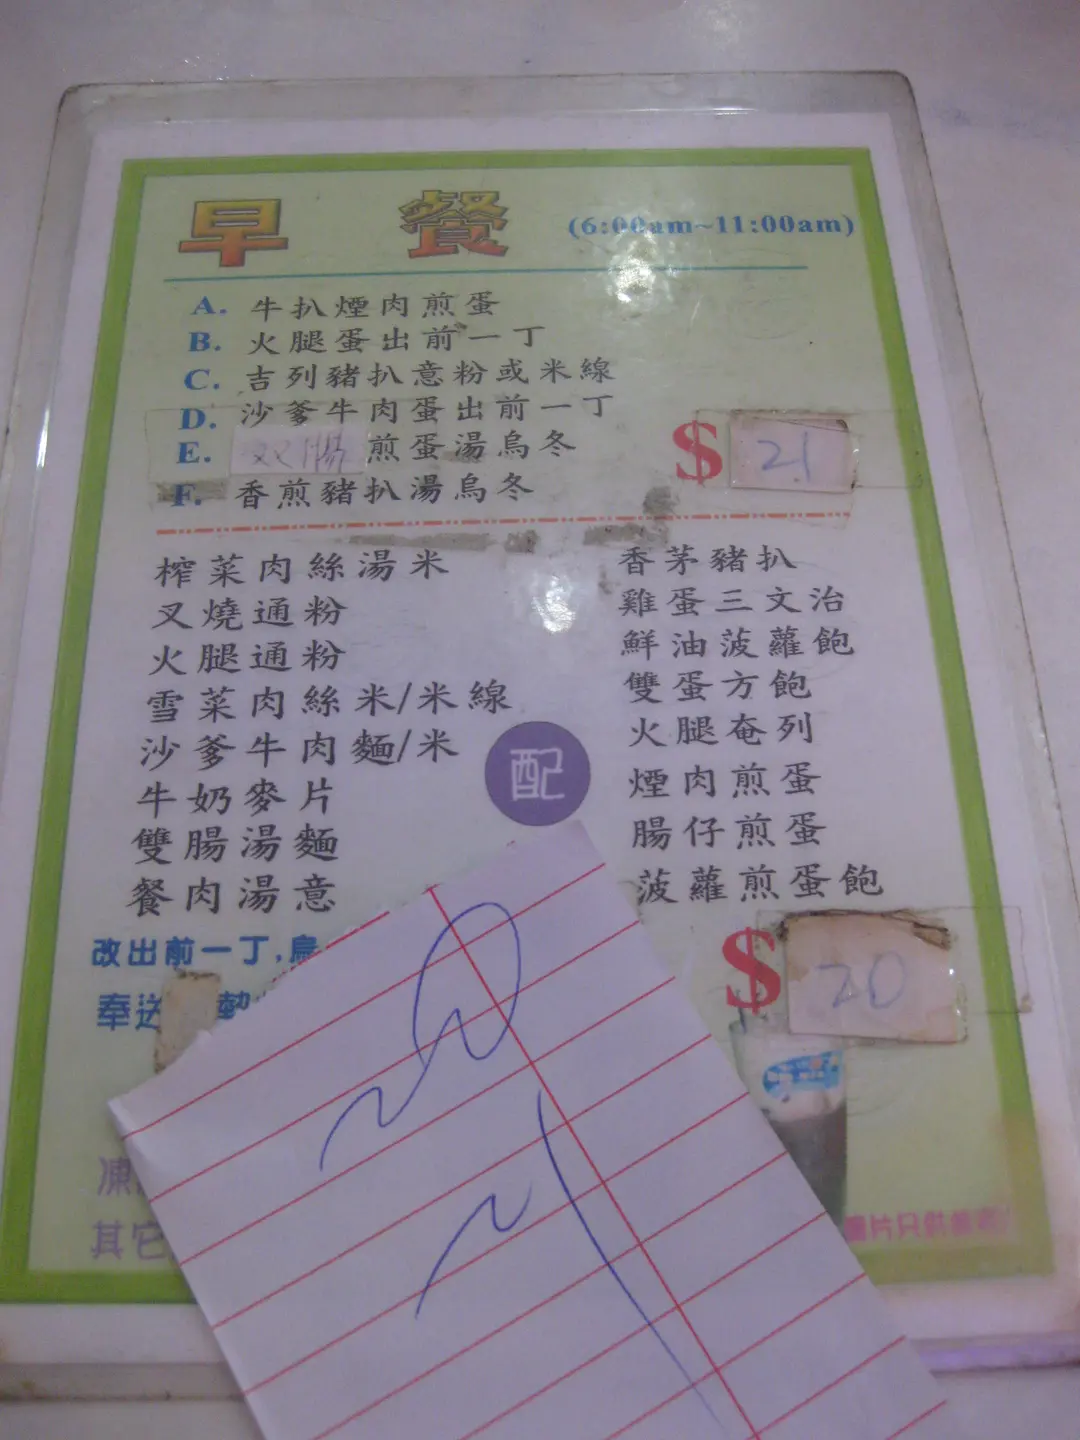 早餐 (6:00am~11:00am)
A. 牛扒煙肉煎蛋
B. 火腿蛋出前一丁
C. 吉列豬扒意粉或米線
D. 沙爹牛肉蛋出前一丁
E. 双腸煎蛋湯烏冬
F. 香煎豬扒湯烏冬
$21
榨菜肉絲湯米
叉燒通粉
火腿通粉
雪菜肉絲米/米線
沙爹牛肉麵/米
牛奶麥片
雙腸湯麵
餐肉湯意
配
香茅豬扒
雞蛋三文治
鮮油菠蘿飽
雙蛋方飽
火腿奄列
煙肉煎蛋
腸仔煎蛋
菠蘿煎蛋飽
$20
改出前一丁,烏
奉送
凍
其它
圖片只供參考